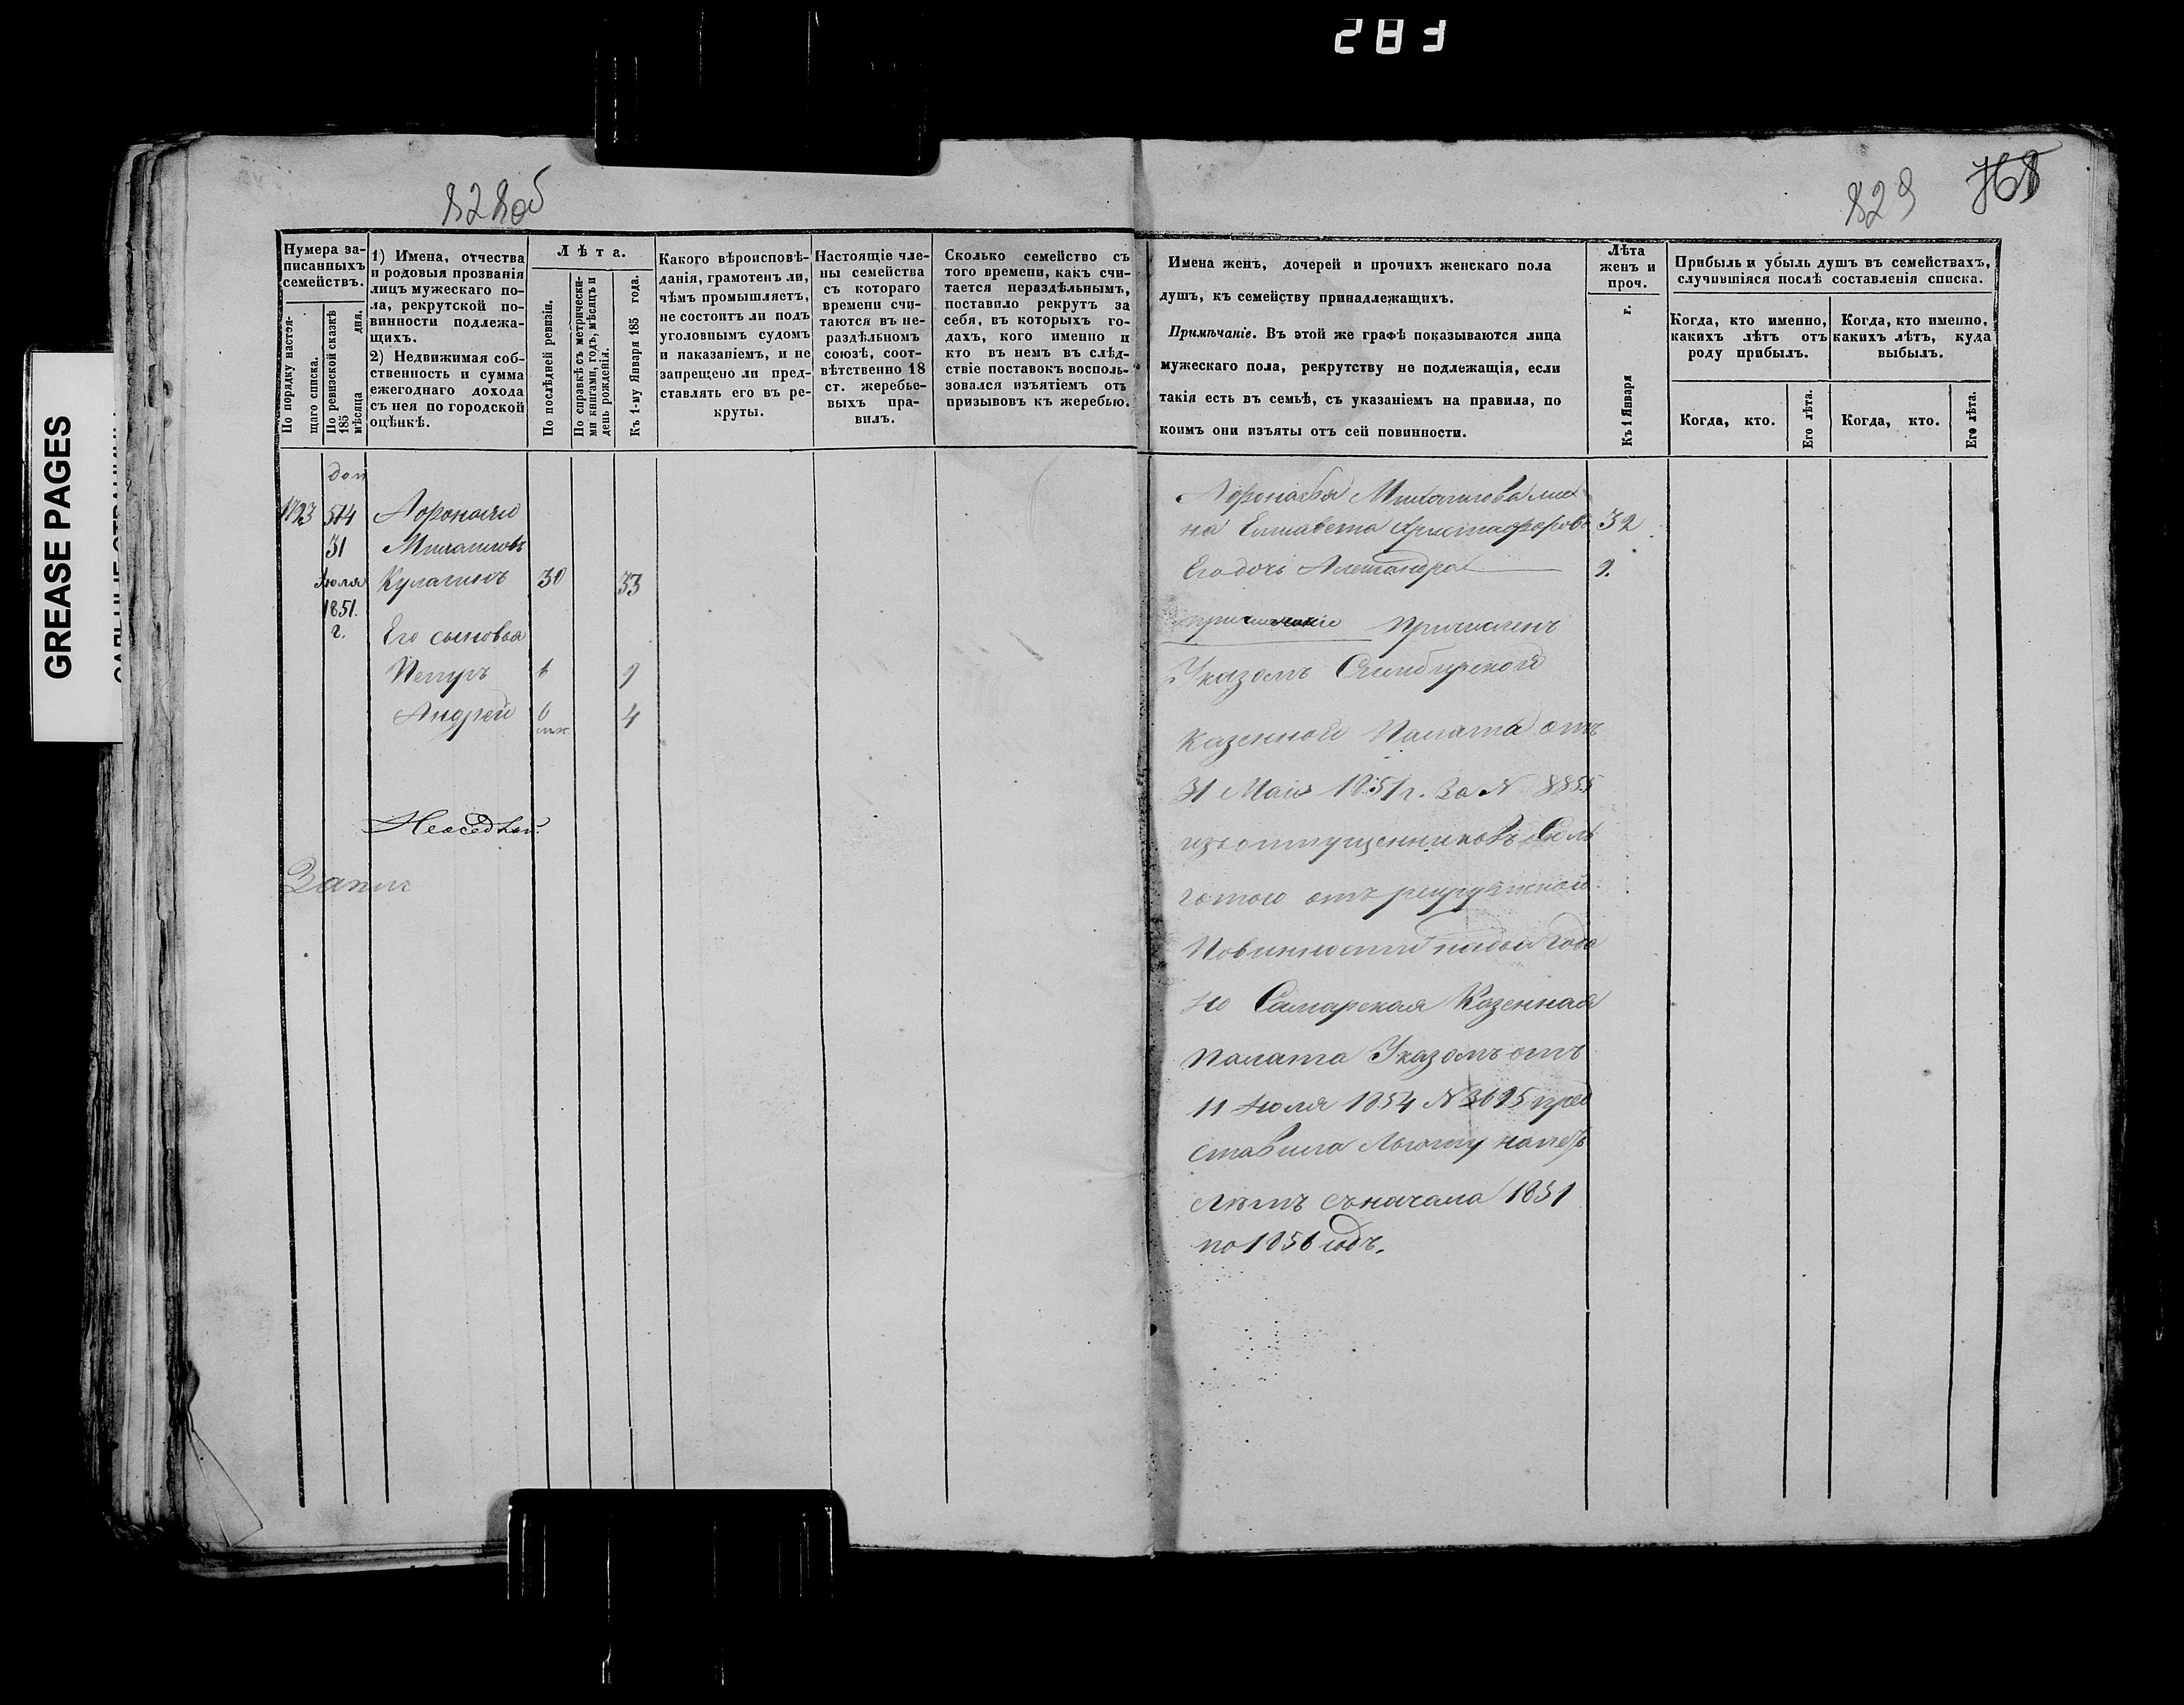 283
828об
829 768
GREASE PAGES
Нумера за-
писанныхъ
семействъ.
По порядку настоя-
щаго списка.
По ревизской сказкѣ
185 дня.
мѣсяца
1) Имена, отчества
и родовыя прозванія
лицъ мужескаго по-
ла, рекрутской по-
винности подлежа-
щихъ.
2) Недвижимая соб-
ственность и сумма
ежегоднаго дохода
съ нея по городской
оцѣнкѣ.
Лѣта.
По послѣдней ревизіи.
По справкѣ съ метрически-
ми книгами, годъ, мѣсяцъ и
день рожденія.
Къ 1-му Января 185 года.
Какого вѣроисповѣ-
данія, грамотенъ ли,
чѣмъ промышляетъ,
не состоитъ ли подъ
уголовнымъ судомъ
и наказаніемъ, и не
запрещено ли пред-
ставлять его въ ре-
круты.
Настоящіе чле-
ны семейства
съ котораго
времени счи-
таются въ не-
раздѣльномъ
союзѣ, соот-
вѣтственно 18
ст. жеребье-
выхъ пра-
вилъ.
Сколько семейство съ
того времени, какъ счи-
тается нераздѣльнымъ,
поставило рекрутъ за
себя, въ которыхъ го-
дахъ, кого именно и
кто въ немъ въ слѣд-
ствіе поставокъ восполь-
зовался изъятіемъ отъ
призывовъ къ жеребью.
Имена женъ, дочерей и прочихъ женскаго пола
душъ, къ семейству принадлежащихъ.
Примѣчаніе. Въ этой же графѣ показываются лица
мужескаго пола, рекрутству не подлежащія, если
такія есть въ семьѣ, съ указаніемъ на правила, по
коимъ они изъяты отъ сей повинности.
Лѣта
женъ и
проч.
Къ 1 Января г.
Прибыль и убыль душъ въ семействахъ,
случившіяся послѣ составленія списка.
Когда, кто именно,
какихъ лѣтъ отъ
роду прибылъ.
Когда, кто именно,
какихъ лѣтъ, куда
выбылъ.
Когда, кто.
Его лѣта.
Когда, кто.
Его лѣта.
доп
1723 514 Афонасій
31 Михаиловъ
Июля Кулагинъ 30 33
1851.
г. Его сыновья
Петръ 1 9
Андрей 6 4
Запис
Афонасья Михаилова
на Елизавета Христофорова 32
Его дочь Александра 9.
Причисленъ
Указомъ Симбирской
Казенной Палаты отъ
31 Маія 1851 г. За N 8855
изъ отпущенниковъ Съ ль
готою отъ рекрутской
Повинности
но Самарская Казенная
Палата Указомъ отъ
11 Июля 1854 N 3695 пред
ставила Льготу
лѣтъ съ начала 1851
по 1856 годъ.